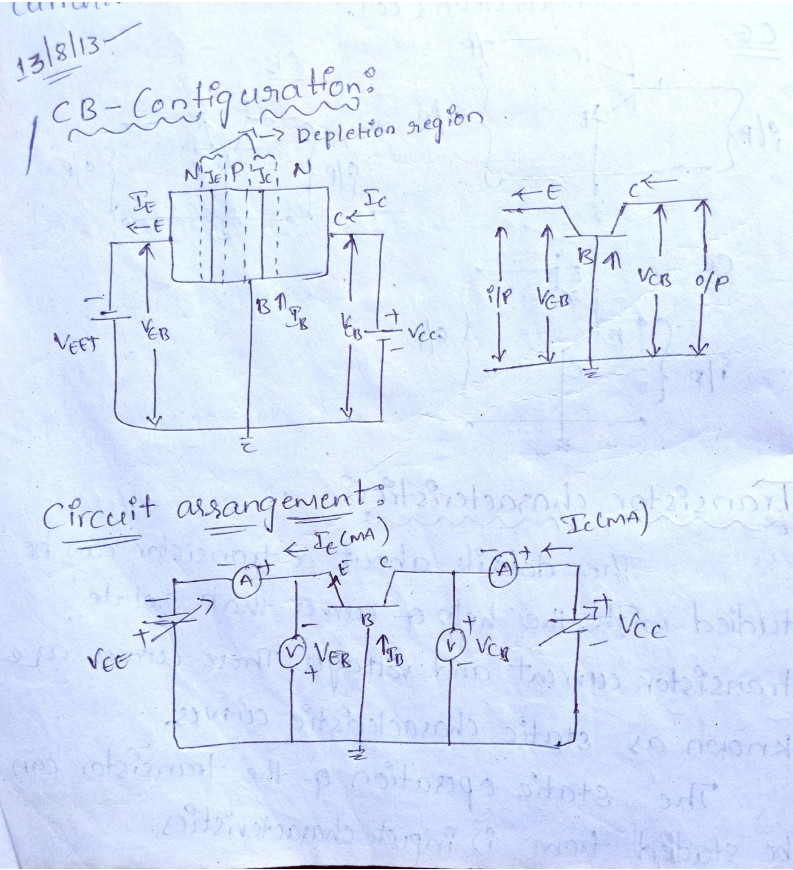 13/8/13
CB-Configuration:
→ Depletion region
N JE P JC N
IE
← E
C ← IC
VEE
VEB
B ↑ IB
VCB
VCC
← E C ←
B ↑
i/P VEB VCB o/P
Circuit arrangement:
← IE (MA)
IC (MA)
- A +
E C
- A +
B
VEE
V VEB
↑ IB
V VCB
VCC